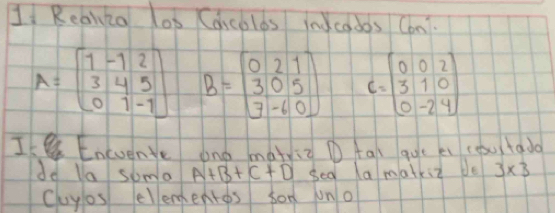 1: Realiza los Cálculos indicados Con:
A = [1 -1 2] B = [0 2 1] C = [0 0 2]
[3 4 5] [3 0 5] [3 1 0]
[0 1 -1] [7 -6 0] [0 -2 4]
I: Encuente una matriz D tal que el resultado
de la suma A+B+C+D sea la matriz de 3x3
Cuyos elementos son uno